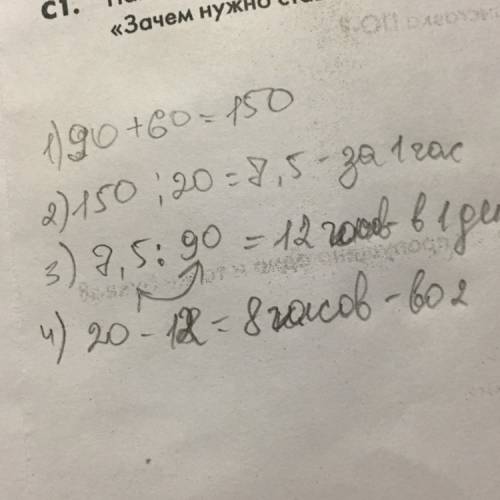 С1.
«Зачем нужно
1) 90 + 60 = 150
2) 150 : 20 = 7,5 - за 1 час
3) 7,5 : 90 = 12 часов в 1
4) 20 - 12 = 8 часов - во 2